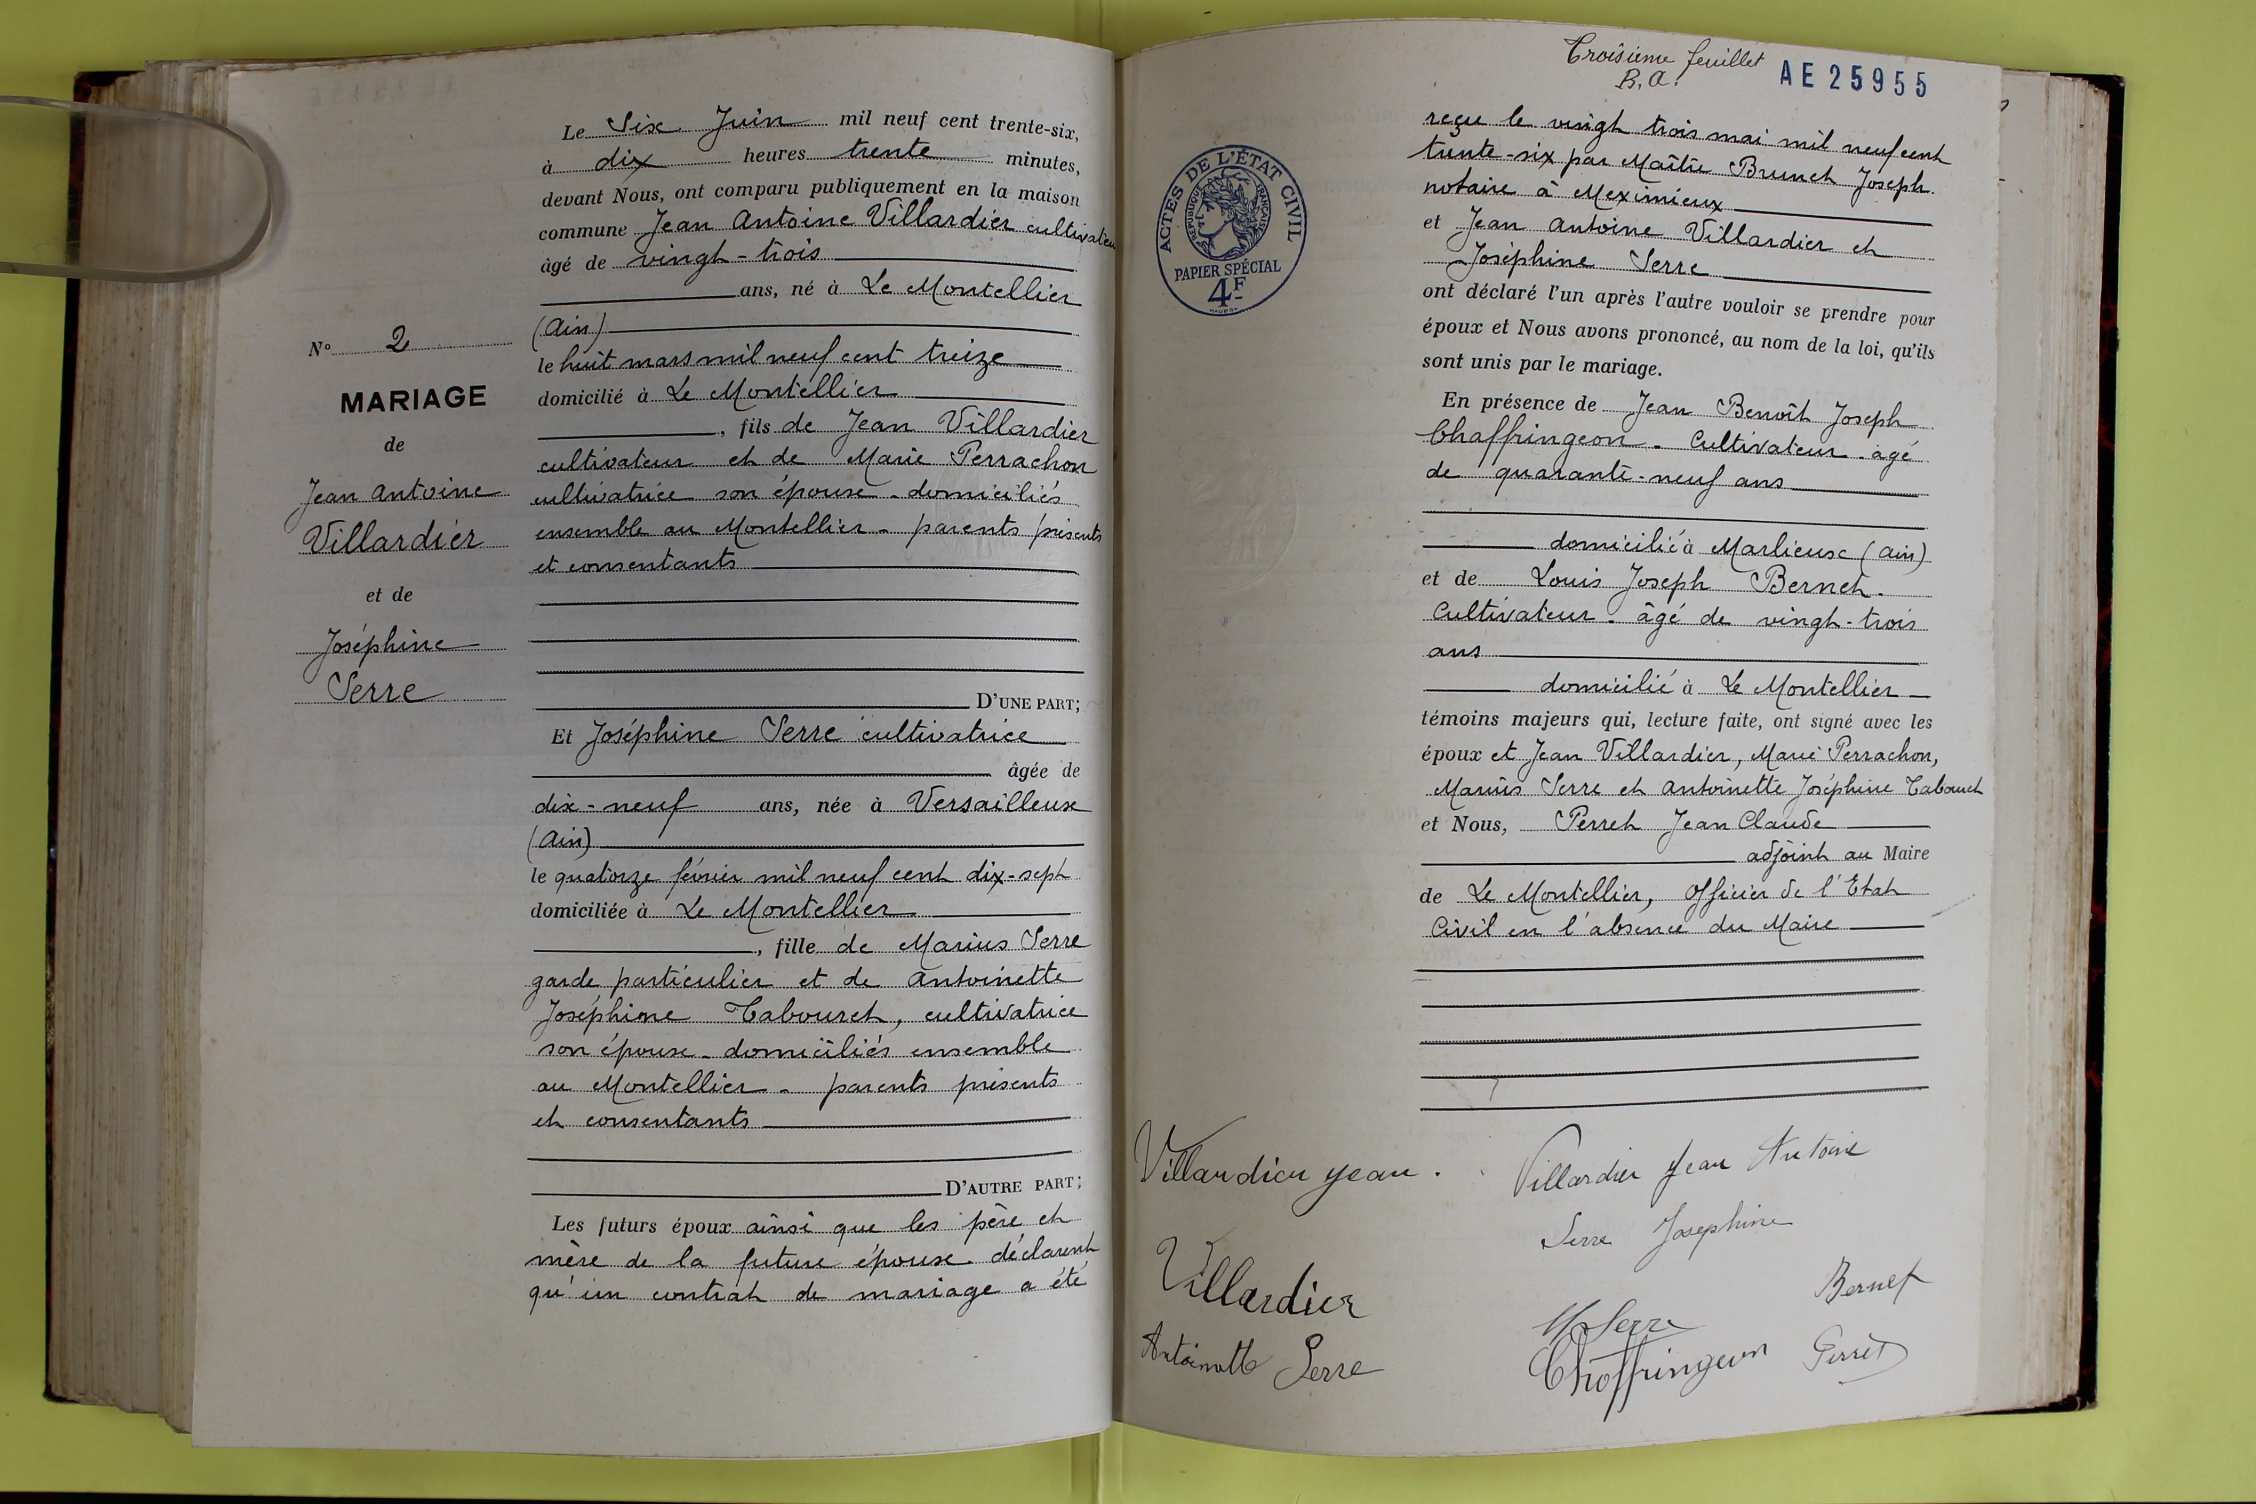 Le Six Juin mil neuf cent trente-six,
à dix heures trente minutes,
devant Nous, ont comparu publiquement en la maison
commune Jean Antoine Villardier cultivateur
âgé de vingt-trois
ans, né à Le Montellier
(Ain)
le huit mars mil neuf cent treize
domicilié à Le Montellier
, fils de Jean Villardier
cultivateur et de Marie Perrachon
cultivatrice son épouse - domiciliés
ensemble au Montellier - parents présents
et consentants
D'UNE PART;
Et Joséphine Serre cultivatrice
âgée de
dix-neuf ans, née à Versailleux
(Ain)
le quatorze février mil neuf cent dix-sept
domiciliée à Le Montellier
, fille de Marius Serre
garde particulier et de Antoinette
Joséphine Tabouret, cultivatrice
son épouse - domiciliés ensemble
au Montellier - parents présents
et consentants
D'AUTRE PART;
Les futurs époux ainsi que les père et
mère de la future épouse déclarent
qu'un contrat de mariage a été
N° 2
MARIAGE
de
Jean Antoine
Villardier
et de
Joséphine
Serre
Troisième feuillet
B. A.
AE 25955
ACTES DE L'ÉTAT CIVIL
RÉPUBLIQUE FRANÇAISE
PAPIER SPÉCIAL
4F
reçu le vingt trois mai mil neuf cent
trente-six par Maître Brunet Joseph
notaire à Meximieux
et Jean Antoine Villardier et
Joséphine Serre
ont déclaré l'un après l'autre vouloir se prendre pour
époux et Nous avons prononcé, au nom de la loi, qu'ils
sont unis par le mariage.
En présence de Jean Benoît Joseph
Chaffringeon - Cultivateur - âgé
de quarante-neuf ans
domicilié à Marlieux (Ain)
et de Louis Joseph Bernet -
Cultivateur - âgé de vingt-trois
ans
domicilié à Le Montellier
témoins majeurs qui, lecture faite, ont signé avec les
époux et Jean Villardier, Marie Perrachon,
Marius Serre et Antoinette Joséphine Tabouret
et Nous, Perret Jean Claude
adjoint au Maire
de Le Montellier, Officier de l'Etat
Civil en l'absence du Maire
Villardier Jean.
Villardier Jean Antoine
Serre Josephine
Villardier
Bernet
M Serre
Antoinette Serre
Chaffringeon
Perret